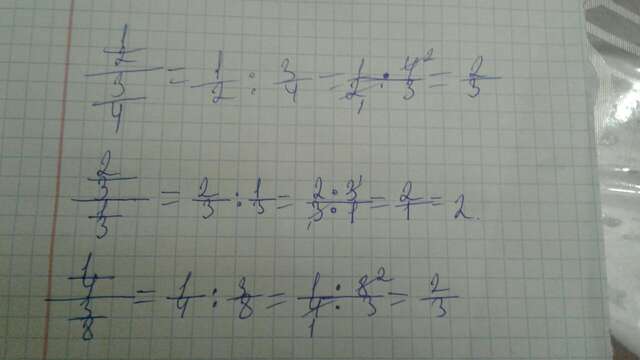 (1/2)/(3/4) = 1/2 : 3/4 = (1 · 4²)/(2₁ · 3) = 2/3
(2/3)/(1/3) = 2/3 : 1/3 = (2 · 3¹)/(3₁ · 1) = 2/1 = 2.
(1/4)/(3/8) = 1/4 : 3/8 = (1 · 8²)/(4₁ · 3) = 2/3